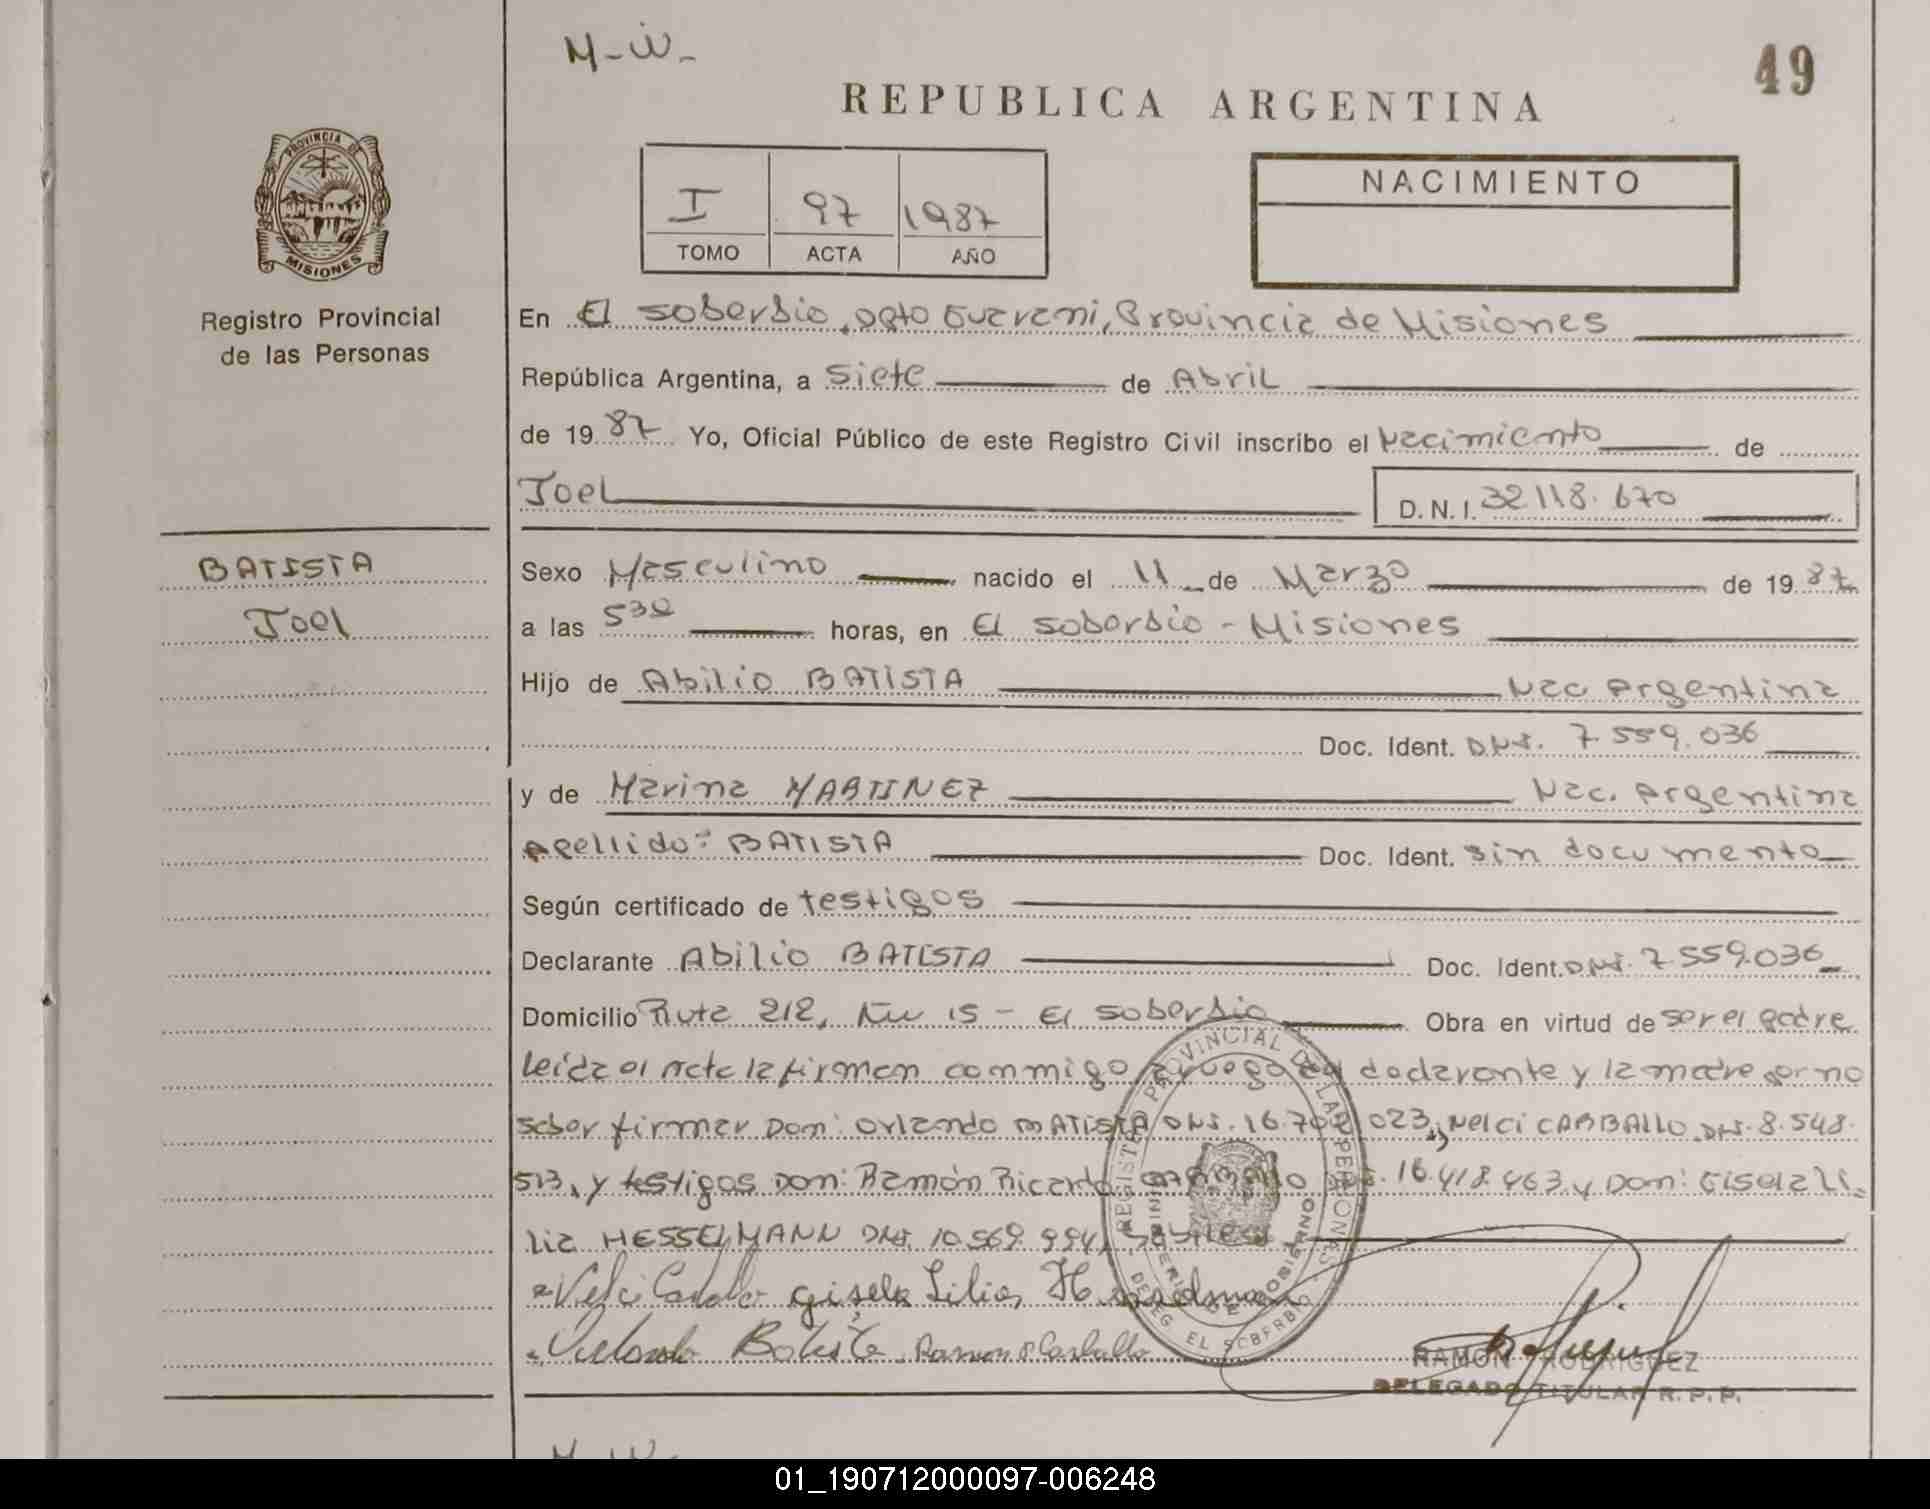 M-W-
49
REPUBLICA ARGENTINA
PROVINCIA DE
MISIONES
Registro Provincial
de las Personas
I 97 1987
TOMO ACTA AÑO
NACIMIENTO
En El Soberbio, Dpto Guarani, Provincia de Misiones
República Argentina, a Siete de Abril
de 1987 Yo, Oficial Público de este Registro Civil inscribo el Nacimiento de
Joel D.N.I. 32118.670
BATISTA
Joel
Sexo Masculino nacido el 11 de Marzo de 1987
a las 530 horas, en El Soberbio - Misiones
Hijo de Abilio BATISTA Nac Argentina
Doc. Ident. DNI. 7.559.036
y de Marina MARTINEZ Nac. Argentina
Apellido: BATISTA Doc. Ident. sin documento
Según certificado de testigos
Declarante Abilio BATISTA Doc. Ident. DNI. 7.559.036
Domicilio Ruta 212, Km 15 - El Soberbio Obra en virtud de ser el padre
Leida el Acta la firman conmigo, a ruego del declarante y la madre por no
saber firmar Don: Orlando BATISTA DNI. 16.70 023, Nelci CARBALLO DNI. 8.548.
513, y testigos Don: Ramón Ricardo CARBALLO 16.418.463 y Don: Gisela Li=
lia HESSELMANN DNI. 10.569.994,
Nelci Carballo Gisela Lilia Hesselmann
Orlando Batista Ramon R Carballo
REGISTRO PROVINCIAL DE LAS PERSONAS
MINISTERIO DE GOBIERNO
DELEG. EL SOBERBIO
RAMON RODRIGUEZ
DELEGADO TITULAR R. P. P.
M-W-
01_190712000097-006248